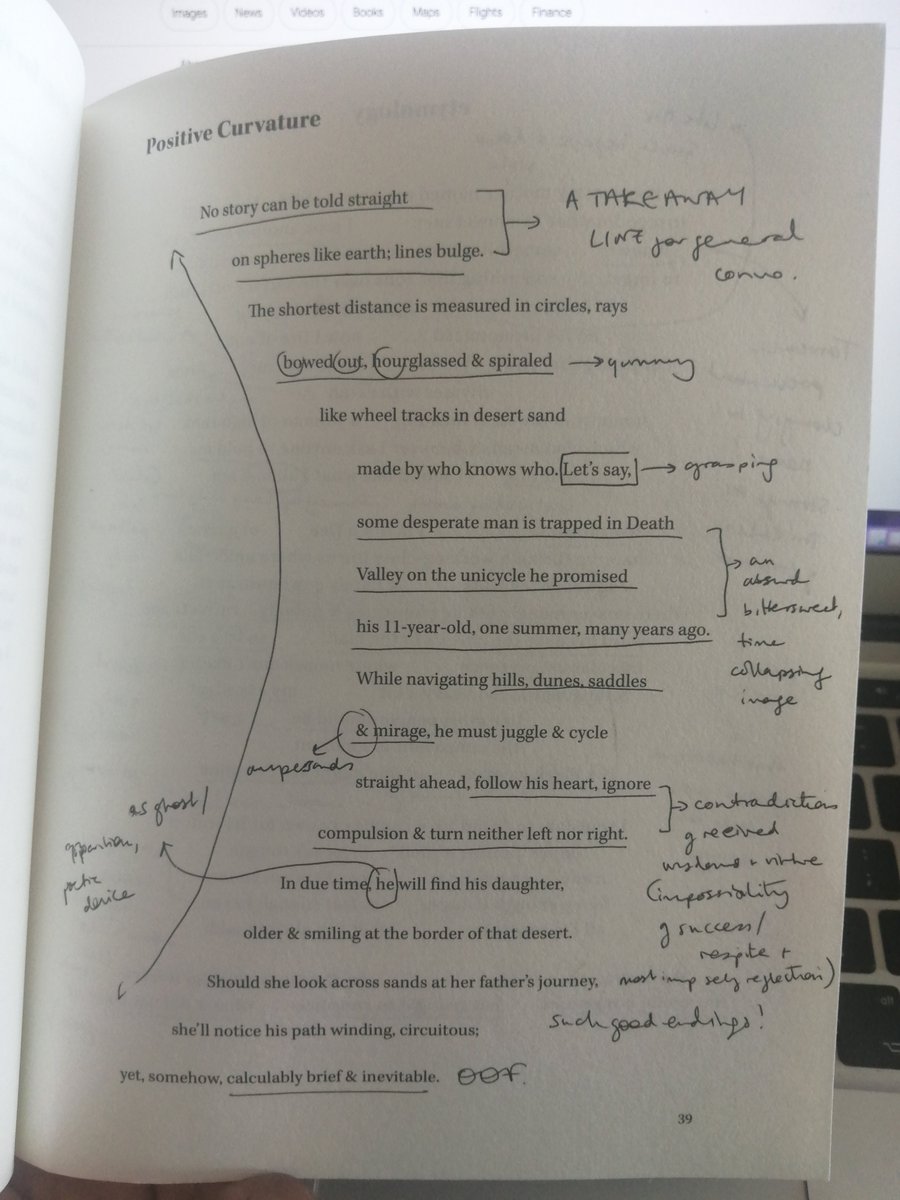 Images News Videos Books Maps Flights Finance
Positive Curvature
No story can be told straight
A TAKEAWAY
LINE for general
convo.
on spheres like earth; lines bulge.
The shortest distance is measured in circles, rays
bowed out, hourglassed & spiraled
yummy
like wheel tracks in desert sand
made by who knows who. Let's say,
grasping
some desperate man is trapped in Death
Valley on the unicycle he promised
his 11-year-old, one summer, many years ago.
an
absurd
bittersweet,
time
collapsing
image
While navigating hills, dunes, saddles
& mirage, he must juggle & cycle
ampersands
straight ahead, follow his heart, ignore
compulsion & turn neither left nor right.
contradictions
g received
wisdoms + virtue
(impossiality
g success/
respite +
most imp self reflection)
as ghost/
apparition,
poetic
device
In due time, he will find his daughter,
older & smiling at the border of that desert.
Should she look across sands at her father's journey,
she'll notice his path winding, circuitous;
such good endings!
yet, somehow, calculably brief & inevitable.
OOF.
39